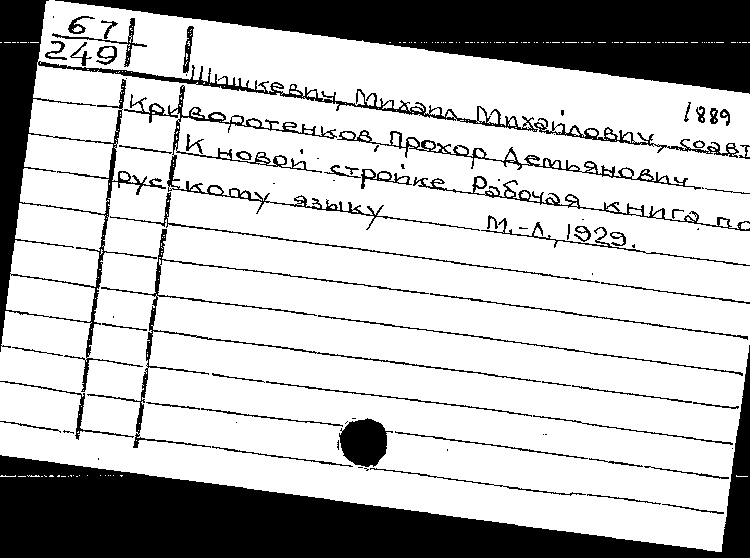 67
249
1889
Шишкевич, Михаил Михайлович, соавт
Криворотенков, Прохор Демьянович.
К новой стройке. Рабочая книга по
русскому языку М.-Л., 1929.